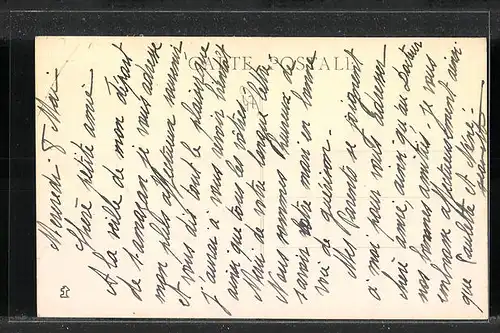 CARTE POSTALE
Mercredi 8 Mai
Chère petite amie
A la veille de mon départ
de Tarragon, je vous adresse
mon plus affectueux souvenir
et vous dis tout le plaisir que
j'aurai à vous revoir bientôt
ainsi que tous les vôtres.
Merci de votre longue lettre
Nous sommes heureux de
savoir votre mari en bonne
voie de guérison.
Mes Parents se joignent
à moi pour vous adresser
chère amie, ainsi qu'au Docteur
nos bonnes amitiés. Je vous
embrasse affectueusement ainsi
que Paulette et